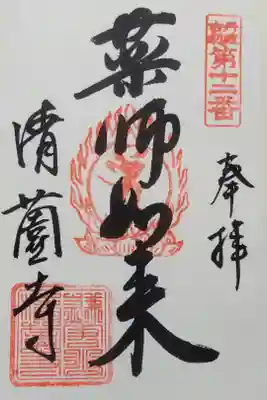 第十二番
奉拝
薬師如来
清薗寺